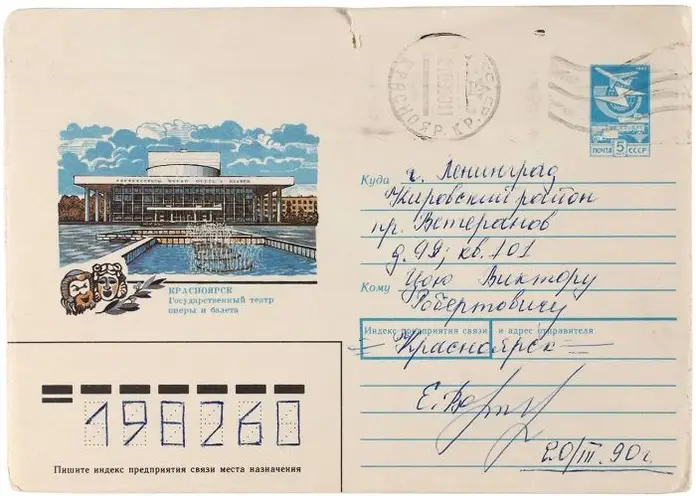 КРАСНОЯР. КР.
ПОЧТА 5 СССР
КРАСНОЯРСК
Государственный театр
оперы и балета
Куда г. Ленинград
Кировский район
пр. Ветеранов
д. 99; кв. 101
Кому Цою Виктору
Робертовичу
Индекс предприятия связи и адрес отправителя
Красноярск
20/III. 90г.
198260
Пишите индекс предприятия связи места назначения